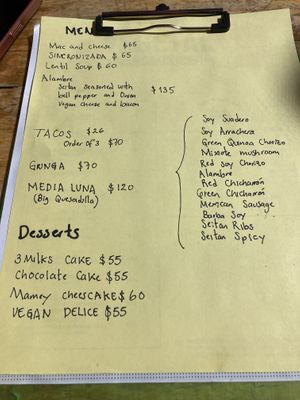 MEN
Mac and cheese $65
SINCRONIZADA $65
Lentil Soup $60
Alambre
Seitan seasoned with
bell pepper and Onion
vegan cheese and bacon
$135
TACOS $26
Order of 3 $70
GRINGA $70
MEDIA LUNA $120
(Big Quesadilla)
Soy Suadero
Soy Arrachera
Green Quinoa Chorizo
Mixote mushroom
Red Soy Chorizo
Alambre
Red Chicharrón
Green Chicharrón
Mexican Sausage
Barba Soy
Seitan Ribs
Seitan Spicy
Desserts
3 Milks CAKE $55
Chocolate Cake $55
Mamey cheesCAKE $60
VEGAN DELICE $55